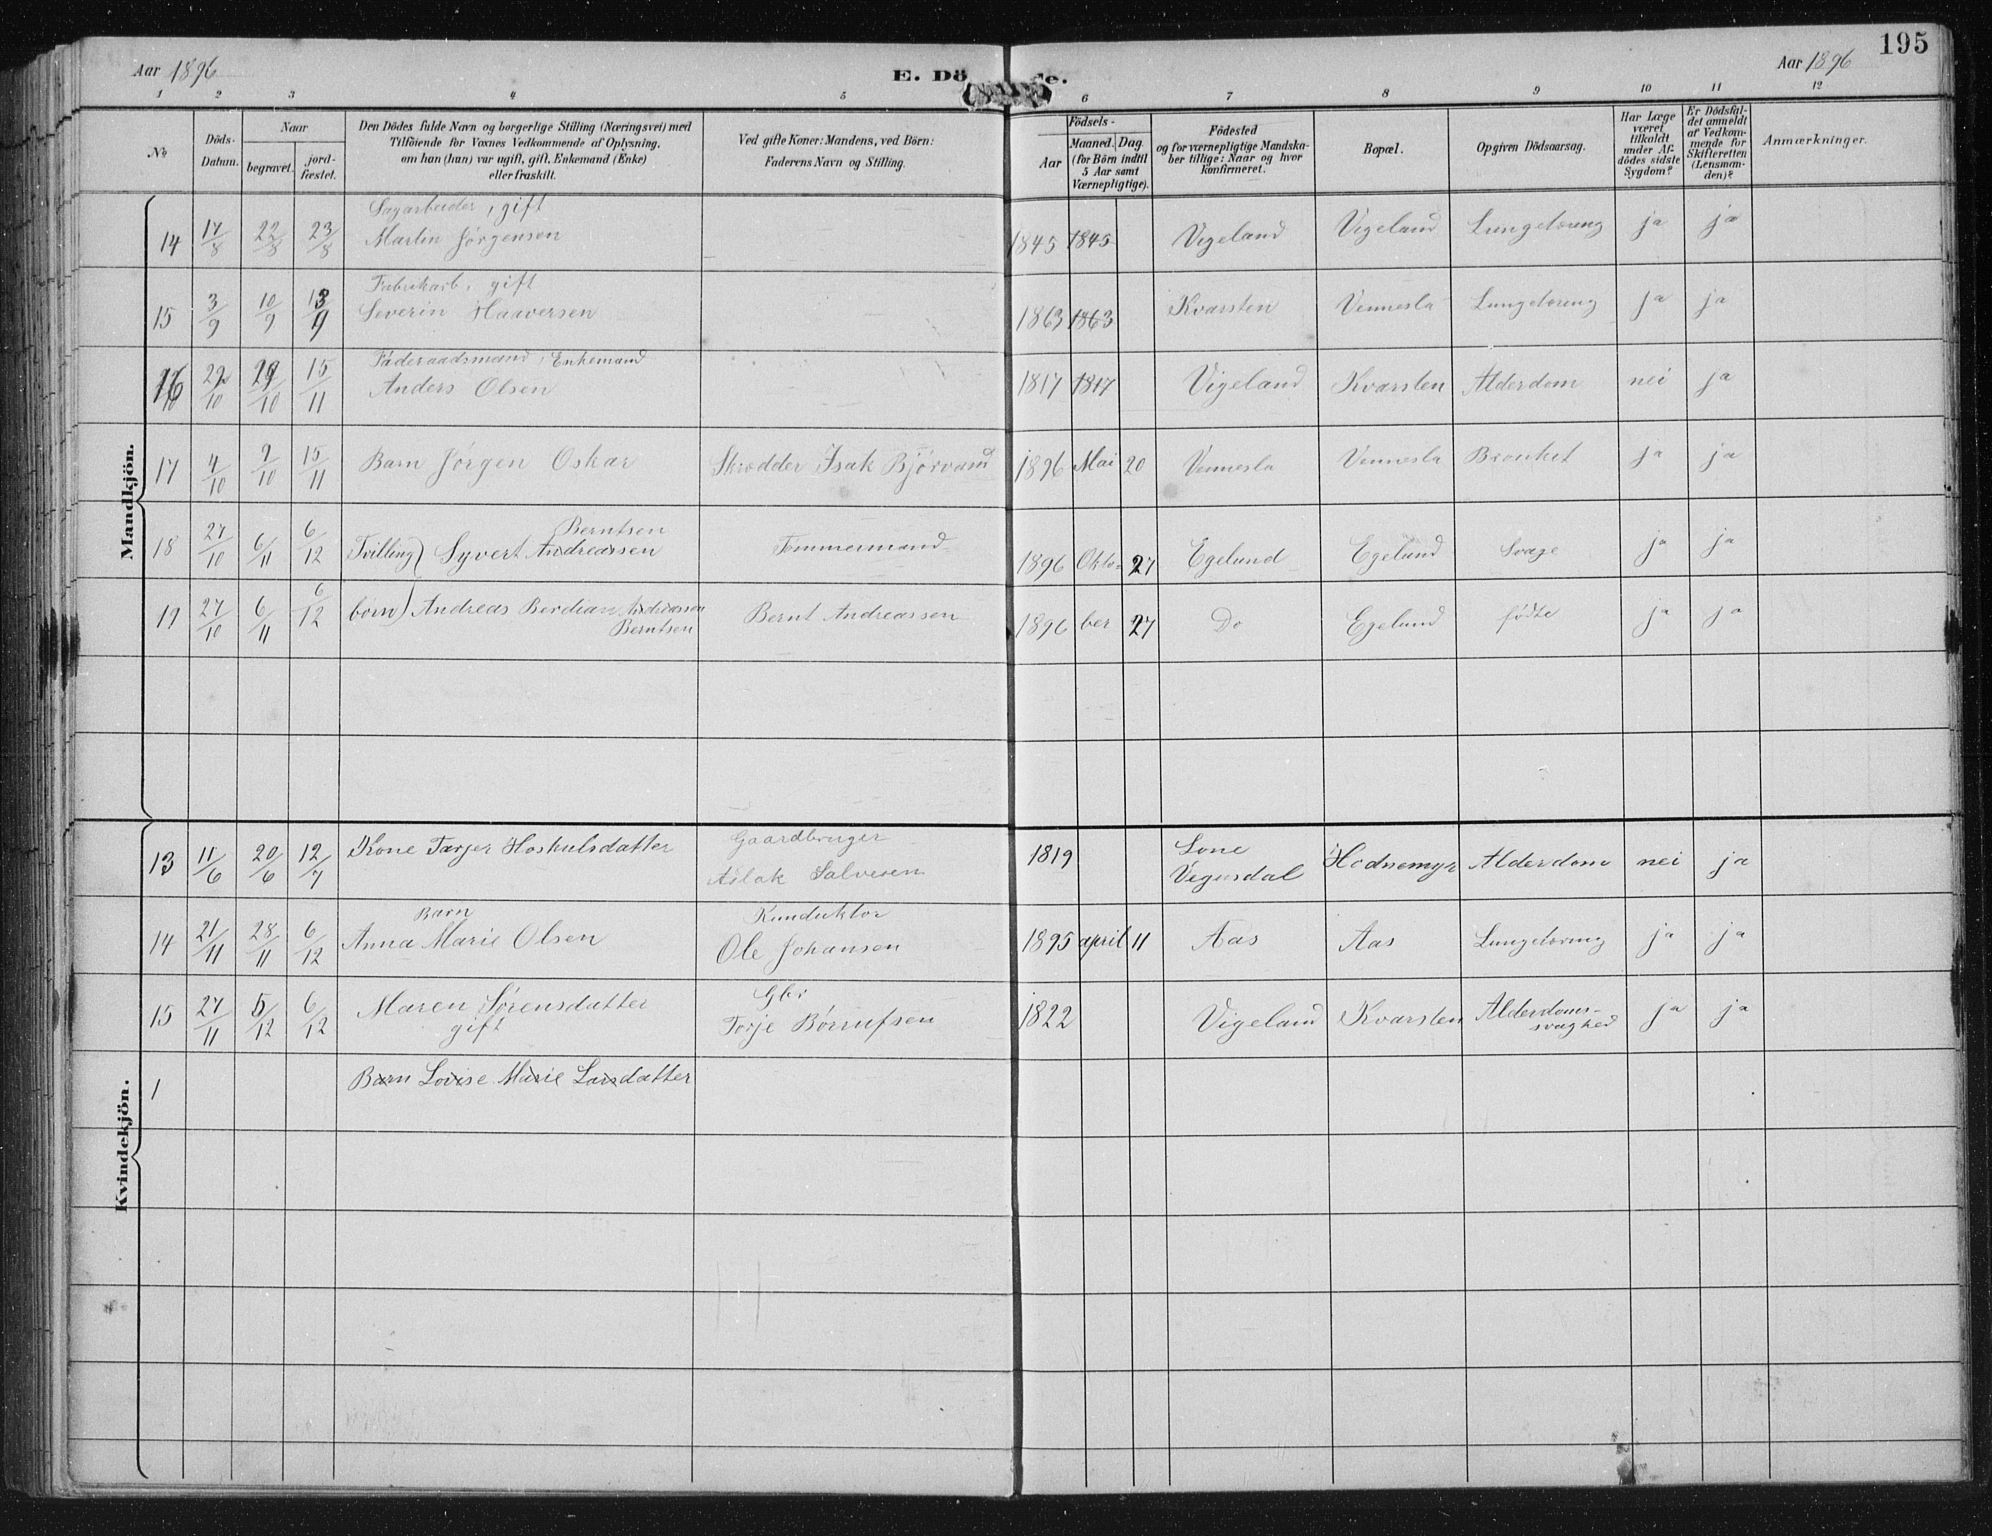 195
Aar 1896
E. Dö
de.
Aar 1896
1 2 3 4 5 6 7 8 9 10 11 12
No
Döds-
Datum.
Naar
begravet.
jord-
fæstet.
Den Dödes fulde Navn og borgerlige Stilling (Næringsvei) med
Tilföiende for Voxnes Vedkommende af Oplysning,
om han (hun) var ugift, gift, Enkemand (Enke)
eller fraskilt.
Ved gifte Koner: Mandens, ved Börn:
Faderens Navn og Stilling.
Födsels-
Aar
Maaned. Dag.
(for Börn indtil
5 Aar samt
Værnepligtige).
Födested
og for værnepligtige Mandska-
ber tillige: Naar og hvor
konfirmeret.
Bopæl.
Opgiven Dödsaarsag.
Har Læge
været
tilkaldt
under Af-
dödes sidste
Sygdom?
Er Dödsfal-
det anmeldt
af Vedkom-
mende for
Skifteretten
(Lensman-
den)?
Anmærkninger.
Mandkjön.
Sagarbeider, gift
14 17/8 22/8 23/8 Martin Jørgensen 1845 1845 Vigeland Vigeland Lungetæring ja ja
Fabrikarb, gift
15 3/9 10/9 13/9 Severin Haaversen 1863 1863 Kvarsten Vennesla Lungetæring ja ja
Føderaadsmand, Enkemand
16 /10 29/10 15/11 Anders Olsen 1817 1817 Vigeland Kvarsten Alderdom nei ja
17 4/10 9/10 15/11 Barn Jørgen Oskar Skrædder Isak Bjørvand 1896 Mai 20 Vennesla Vennesla Bronkit ja ja
Berntsen
18 27/10 6/11 6/12 Tvilling) Syvert Andreassen Tømmermand 1896 Okto- 27 Egelund Egelund Svage ja ja
19 27/10 6/11 6/12 børn) Andreas Berdian Andreassen Bernt Andreassen 1896 ber 27 Do Egelund fødte ja ja
Berntsen
Kvindekjön.
13 11/6 20/6 12/7 Kone Tarjer Hoskulsdatter Gaardbruger 1819 Lone Hodnemyr Alderdom nei ja
Aslak Salvesen Vegusdal
Barn Konduktør
14 21/11 28/11 6/12 Anna Marie Olsen Ole Johansen 1895 april 11 Aas Aas Lungetæring ja ja
Gbr
15 27/11 5/12 6/12 Maren Sørensdatter Torje Børrufsen 1822 Vigeland Kvarsten Alderdoms- ja ja
gift svaghed
1 Barn Lovise Marie Larsdatter